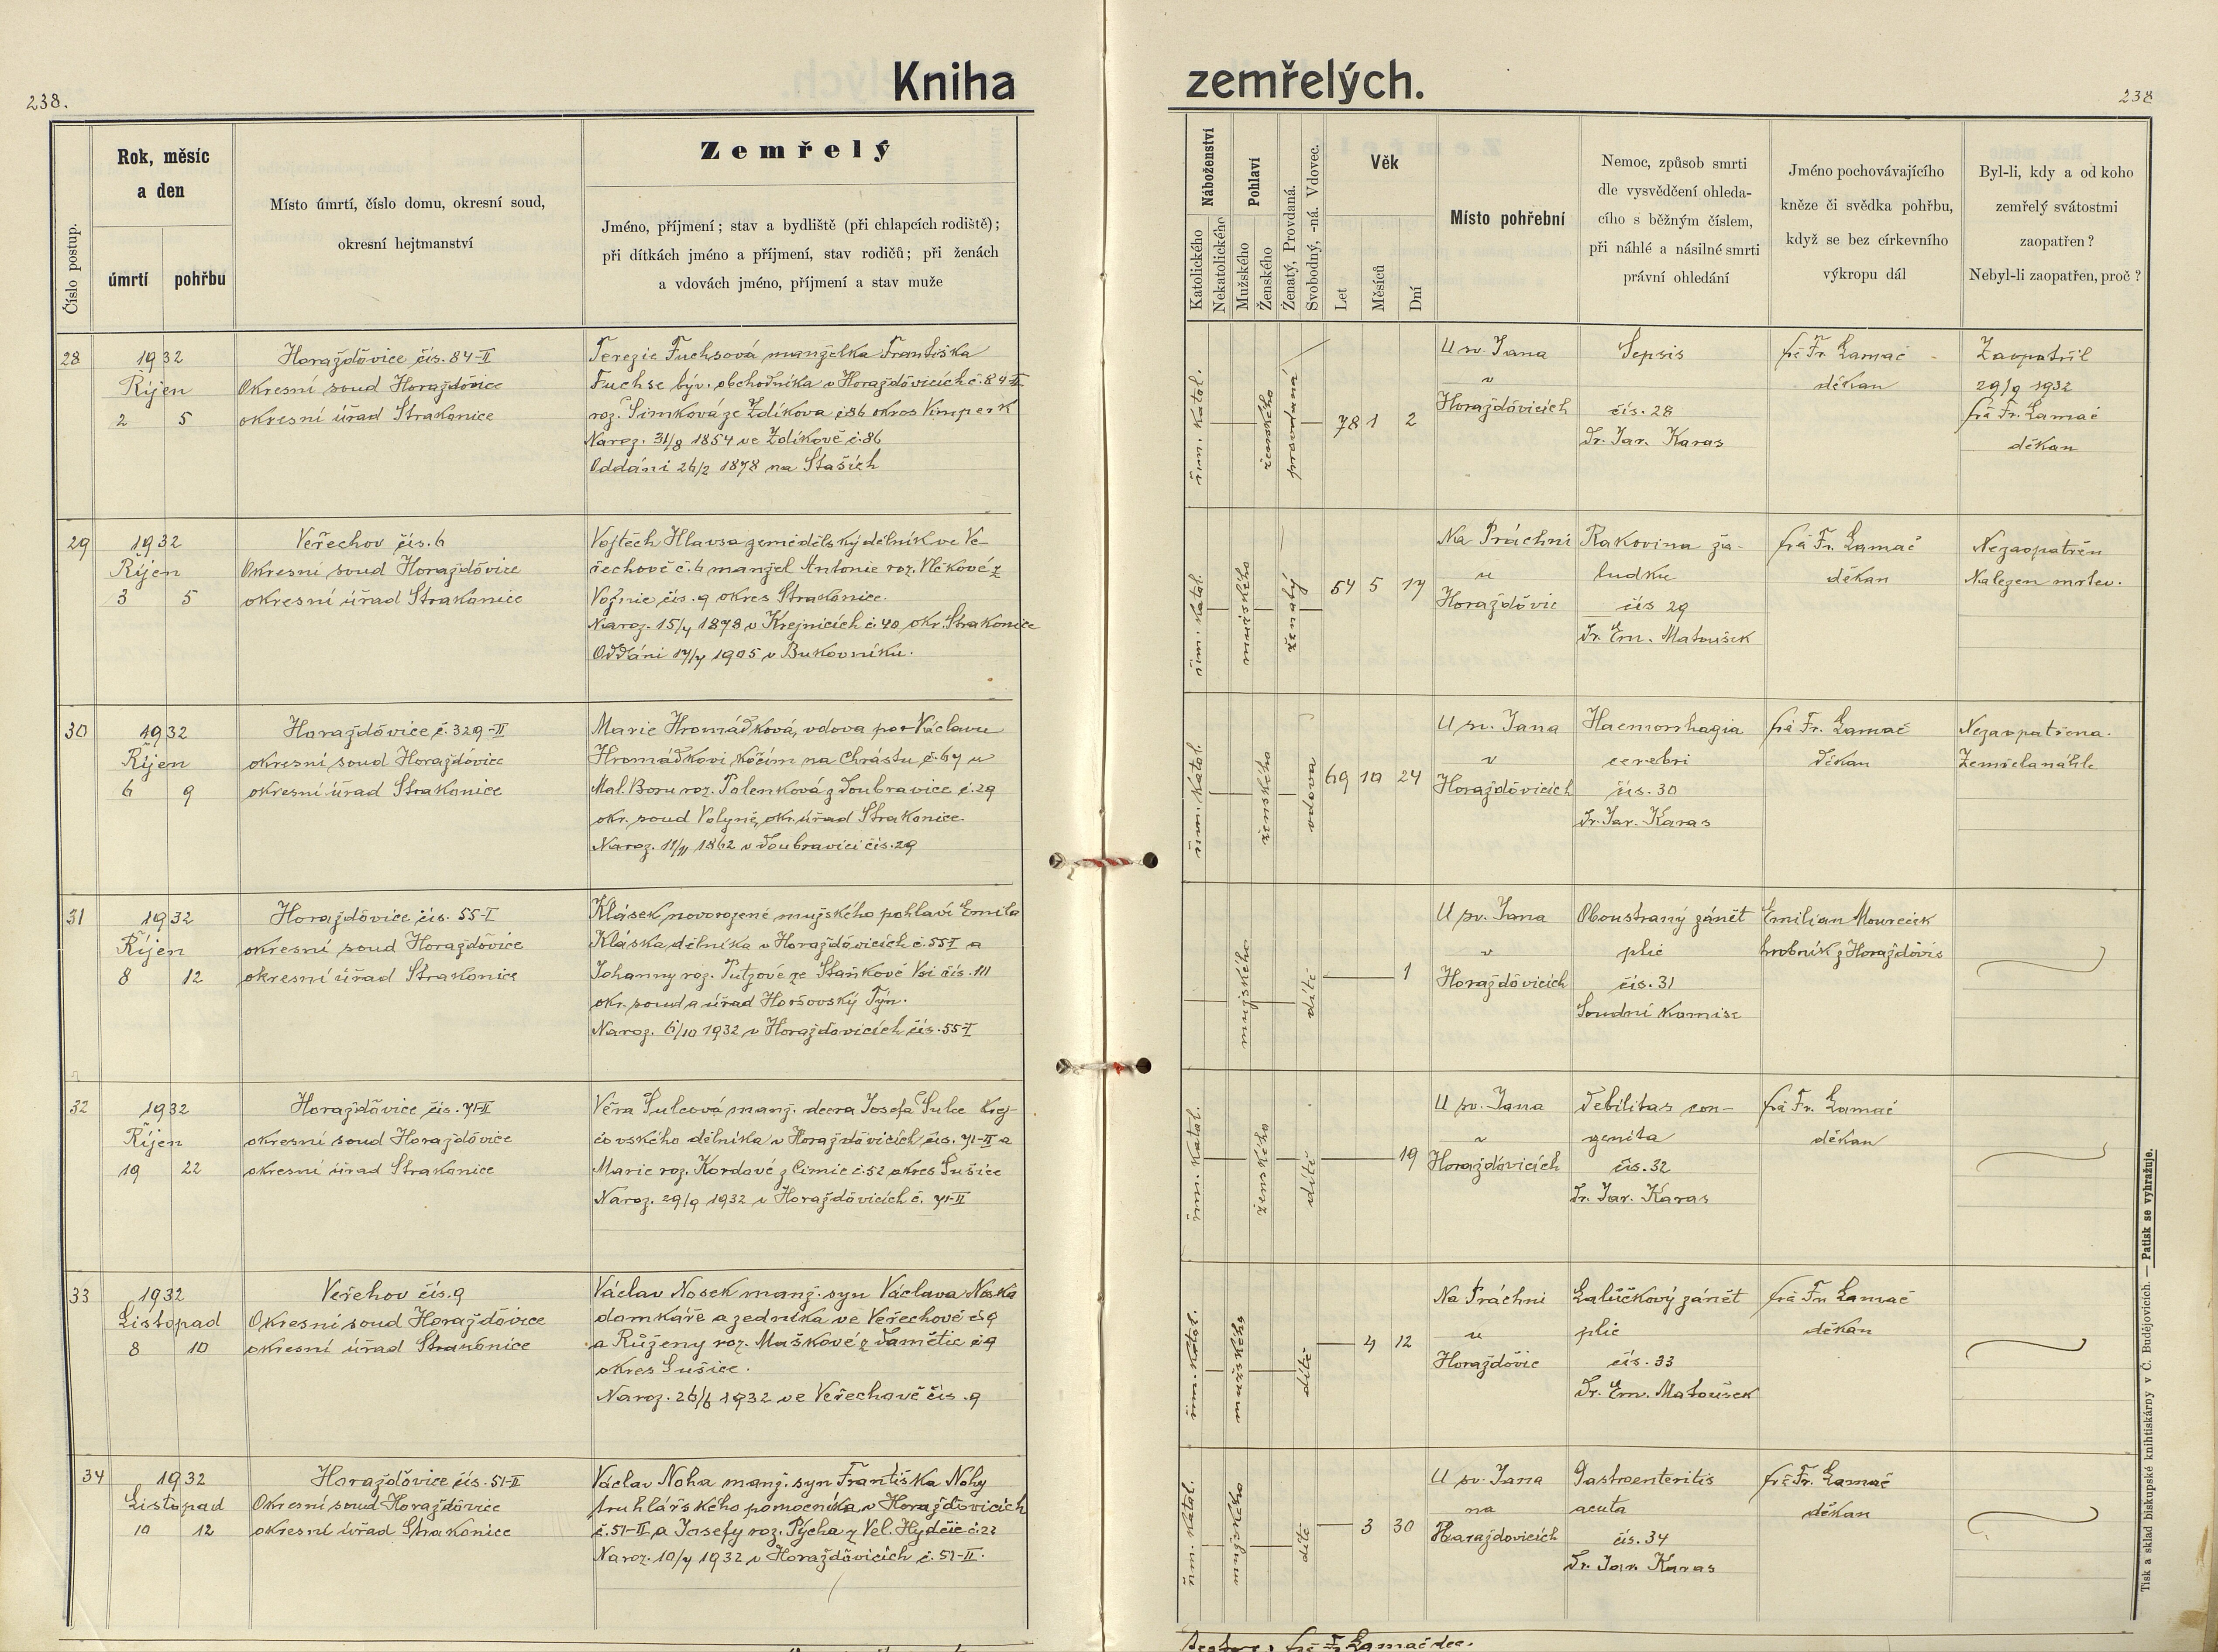 Kniha zemřelých.
238.
238
Číslo postup.
Rok, měsíc
a den
úmrtí
pohřbu
Místo úmrtí, číslo domu, okresní soud,
okresní hejtmanství
Zemřelý
Jméno, příjmení; stav a bydliště (při chlapcích rodiště);
při dítkách jméno a příjmení, stav rodičů; při ženách
a vdovách jméno, příjmení a stav muže
Náboženství
Katolického
Nekatolického
Pohlaví
Mužského
Ženského
Ženatý, Provdaná.
Svobodný, -ná. Vdovec.
Věk
Let
Měsíců
Dní
Místo pohřební
Nemoc, způsob smrti
dle vysvědčení ohleda-
cího s běžným číslem,
při náhlé a násilné smrti
právní ohledání
Jméno pochovávajícího
kněze či svědka pohřbu,
když se bez církevního
výkropu dál
Byl-li, kdy a od koho
zemřelý svátostmi
zaopatřen?
Nebyl-li zaopatřen, proč?
28
1932
Říjen
2 5
Horažďovice čís. 84-II
Okresní soud Horažďovice
okresní úřad Strakonice
Terezie Fuchsová manželka Františka
Fuchse býv. obchodníka v Horažďovicích č. 84-II
roz. Šimková ze Zdíkova č 86 okres Vimperk
Naroz. 31/8 1854 ve Zdíkově č. 86
Oddáni 26/2 1878 na Staších
řím. katol.
ženského
provdaná
78 1 2
U sv. Jana
v
Horažďovicích
Sepsis
čís. 28
Dr. Jar. Karas
frá Fr. Lamač
děkan
Zaopatřil
29/9 1932
frá Fr. Lamač
děkan
29
1932
Říjen
3 5
Veřechov čís. 6
Okresní soud Horažďovice
okresní úřad Strakonice
Vojtěch Hlavsa zemědělský dělník ve Ve-
řechově č. 6 manžel Antonie roz. Vlčkové z
Vojnic čís. 9 okres Strakonice.
Naroz. 15/4 1878 v Krejnicích č. 40 okr. Strakonice
Oddáni 17/4 1905 v Bukovníku.
řím. katol.
mužského
ženatý
54 5 17
Na Práchni
u
Horažďovic
Rakovina ža-
ludku
čís 29
Dr. Em. Matoušek
frá Fr. Lamač
děkan
Nezaopatřen
Nalezen mrtev.
30
1932
Říjen
6 9
Horažďovice č. 329-II
okresní soud Horažďovice
okresní úřad Strakonice
Marie Hromádková, vdova po Václavu
Hromádkovi kočím na Chrástu č. 67 u
Mal. Boru roz. Polenková z Doubravice č. 29
okr. soud Volyně, okr. úřad Strakonice.
Naroz. 12/11 1862 v Doubravici čís. 29
řím. katol.
ženského
vdova
69 10 24
U sv. Jana
v
Horažďovicích
Haemorrhagia
cerebri
čís. 30
Dr. Jar. Karas
frá Fr. Lamač
děkan
Nezaopatřena.
Zemřela náhle
31
1932
Říjen
8 12
Horažďovice čís. 55-I
okresní soud Horažďovice
okresní úřad Strakonice
Klásek novorozené mužského pohlaví Emila
Kláska, dělníka v Horažďovicích č. 55-I a
Johanny roz. Putzové ze Staňkové Vsi čís. 111
okr. soud a úřad Horšovský Týn.
Naroz. 6/10 1932 v Horažďovicích čís. 55-I
mužského
dítě
1
U sv. Jana
v
Horažďovicích
Oboustraný zánět
plic
čís. 31
Soudní komise
Emilian Mourecek
hrobník z Horažďovic
32
1932
Říjen
19 22
Horažďovice čís. 71-II
okresní soud Horažďovice
okresní úřad Strakonice
Věra Šulcová manž. dcera Josefa Šulce krej-
čovského dělníka v Horažďovicích čís. 71-II a
Marie roz. Kordové z Čimic č. 52 okres Sušice
Naroz. 29/9 1932 v Horažďovicích č. 71-II
řím. katol.
ženského
dítě
19
U sv. Jana
v
Horažďovicích
Debilitas con-
genita
čís. 32
Dr. Jar. Karas
frá Fr. Lamač
děkan
33
1932
Listopad
8 10
Veřehov čís. 9
Okresní soud Horažďovice
okresní úřad Strakonice
Václav Nosek manž. syn Václava Noska
domkáře a zedníka ve Veřechově č 9
a Růženy roz. Maškové z Damětic č 9
okres Sušice.
Naroz. 26/6 1932 ve Veřechově čís. 9
řím. katol.
mužského
dítě
4 12
Na Práchni
u
Horažďovic
Lalůčkový zánět
plic
čís. 33
Dr. Em. Matoušek
frá Fr. Lamač
děkan
34
1932
Listopad
10 12
Horažďovice čís. 51-II
Okresní soud Horažďovice
okresní úřad Strakonice
Václav Noha manž. syn Františka Nohy
truhlářského pomocníka v Horažďovicích
č. 51-II a Josefy roz. Pýcha z Vel. Hydčic č. 22
Naroz. 10/7 1932 v Horažďovicích č. 51-II.
řím. katol.
mužského
dítě
3 30
U sv. Jana
na
Horažďovicích
Gastroenteritis
acuta
čís. 34
Dr. Jar. Karas
frá Fr. Lamač
děkan
Tisk a sklad biskupské knihtiskárny v Č. Budějovicích. — Patisk se vyhražuje.
frá Fr. Lamač dec.